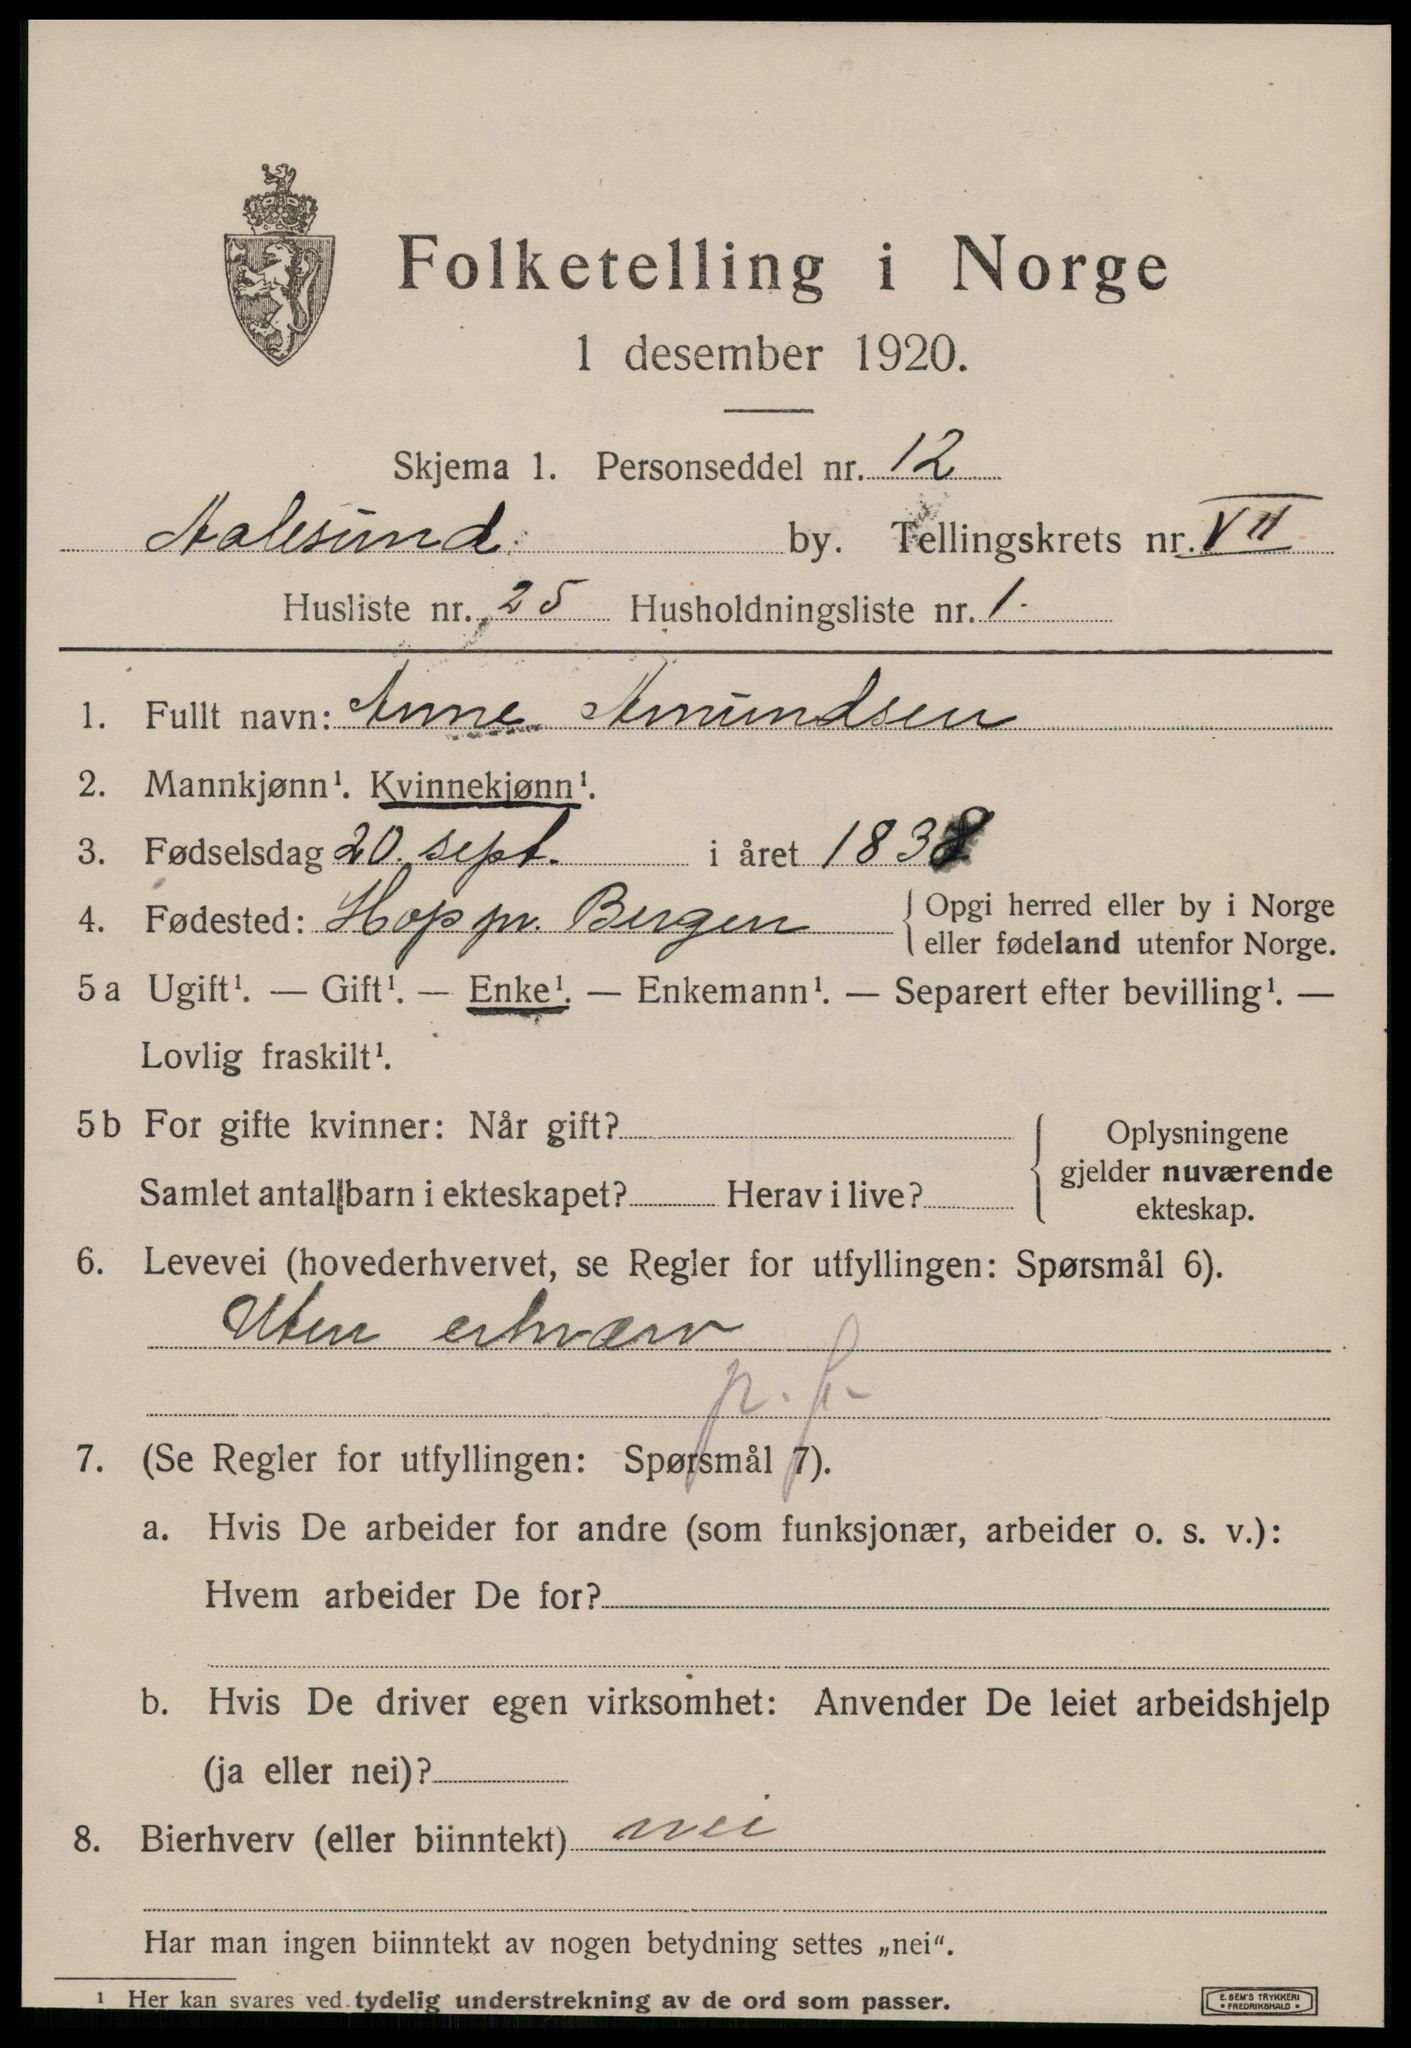 Folketelling i Norge
1 desember 1920.
Skjema 1. Personseddel nr. 12
Aalesund by. Tellingskrets nr. VII
Husliste nr. 25 Husholdningsliste nr. 1.
1. Fullt navn: Anne Amundsen
2. Mannkjønn¹. Kvinnekjønn¹.
3. Fødselsdag 20. sept. i året 1838
4. Fødested: Hop pr. Bergen { Opgi herred eller by i Norge
eller fødeland utenfor Norge.
5a Ugift¹. — Gift¹. — Enke¹. — Enkemann¹. — Separert efter bevilling¹. —
Lovlig fraskilt¹.
5b For gifte kvinner: Når gift?
Samlet antall barn i ekteskapet? Herav i live?
{ Oplysningene
gjelder nuværende
ekteskap.
6. Levevei (hovederhvervet, se Regler for utfyllingen: Spørsmål 6).
Uten erhværv
7. (Se Regler for utfyllingen: Spørsmål 7).
a. Hvis De arbeider for andre (som funksjonær, arbeider o. s. v.):
Hvem arbeider De for?
b. Hvis De driver egen virksomhet: Anvender De leiet arbeidshjelp
(ja eller nei)?
8. Bierhverv (eller biinntekt) nei
Har man ingen biinntekt av nogen betydning settes „nei".
¹ Her kan svares ved tydelig understrekning av de ord som passer.
E. SEM'S TRYKKERI
• FREDRIKSHALD •